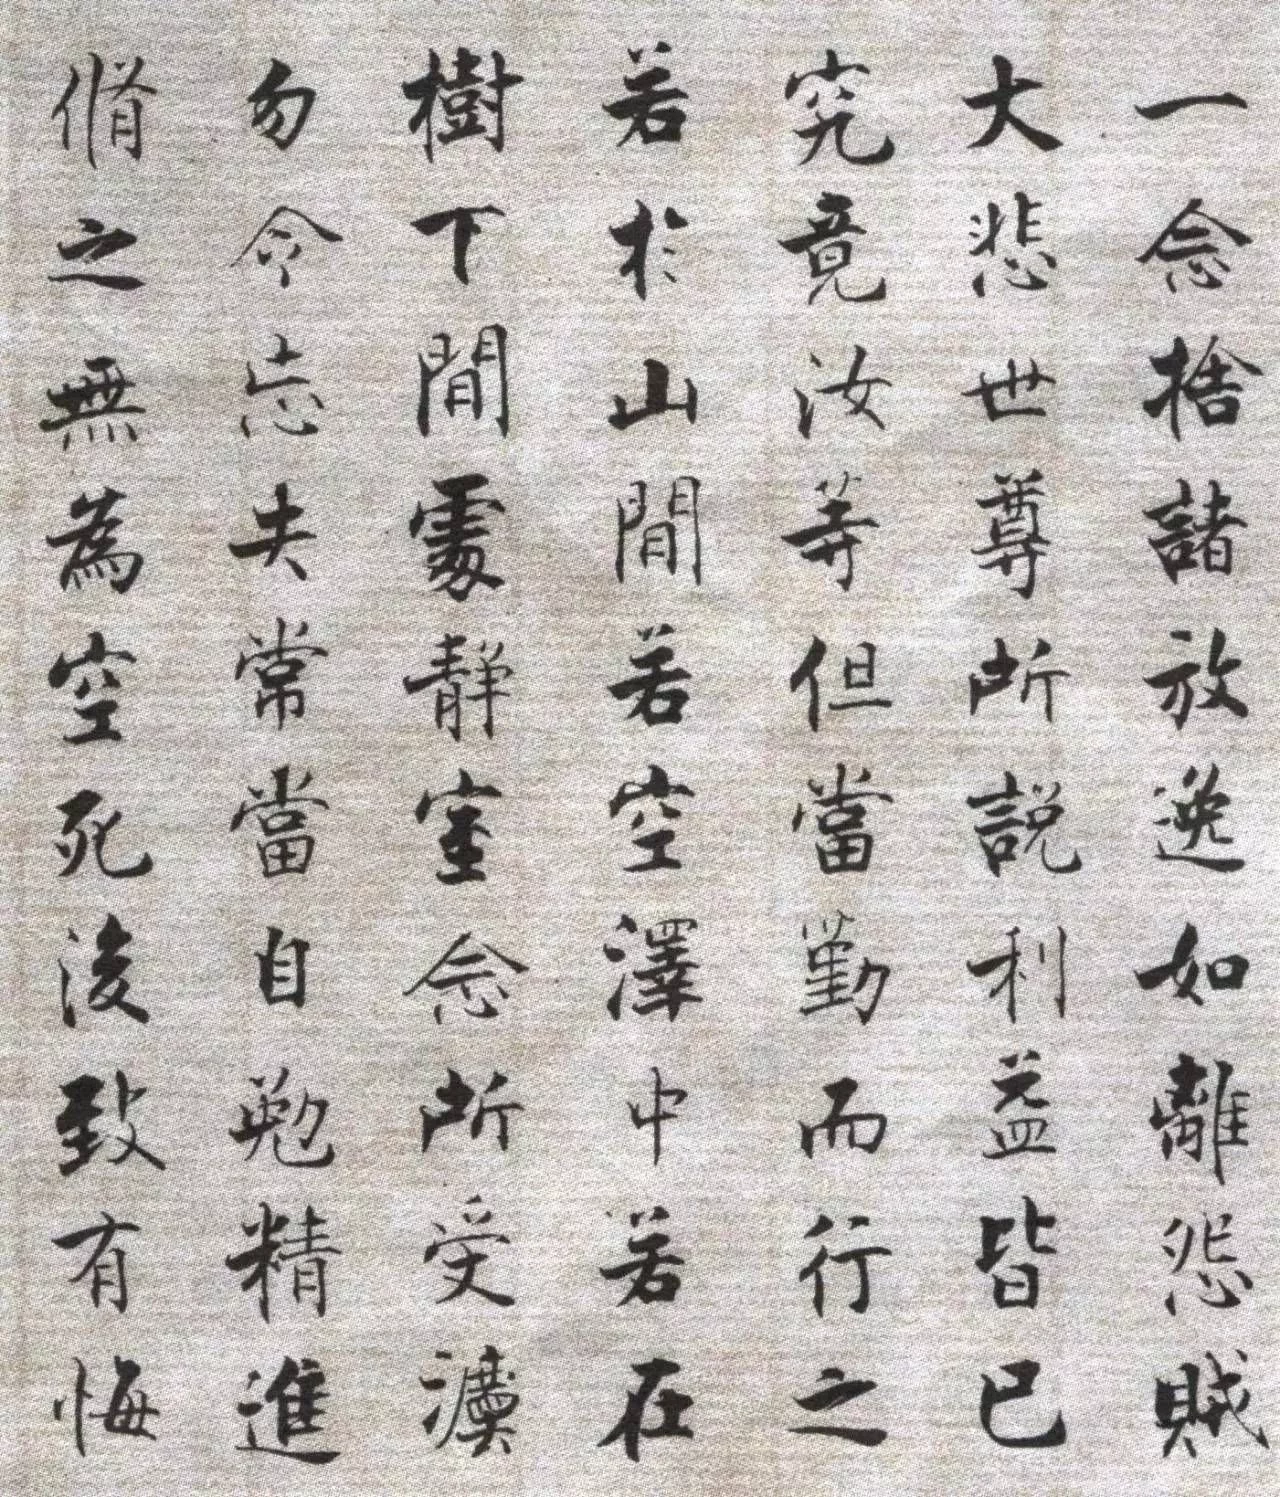 一念捨諸放逸如離怨賊
大悲世尊所說利益皆已
究竟汝等但當勤而行之
若於山間若空澤中若在
樹下間處靜室念所受灋
勿令忘失常當自勉精進
脩之無為空死後致有悔